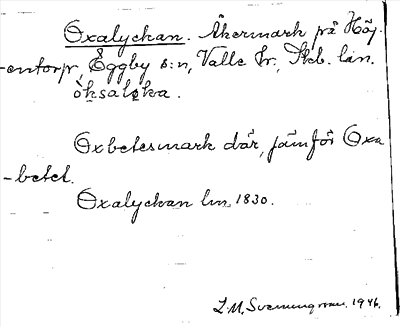 Oxalyckan. Åkermark på Höj-
-entorp, Eggby s:n, Valle hr, Skb. län.
òksalơka.
Oxbetesmark där, jämför Oxa
-betet.
Oxalyckan lm 1830.
L.M. Svenungsson. 1946.